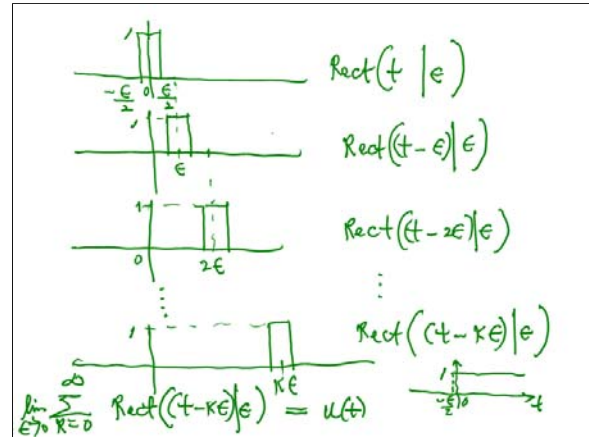 1
-ϵ/2 0 ϵ/2
Rect(t | ϵ)
1
ϵ
Rect((t-ϵ)|ϵ)
1
0 2ϵ
Rect((t-2ϵ)|ϵ)
⋮ ⋮
1
Kϵ
Rect((t-Kϵ)|ϵ)
1
-ϵ/2 0 t
lim ϵ→0 ∑ K=0 ∞ Rect((t-Kϵ)|ϵ) = u(t)